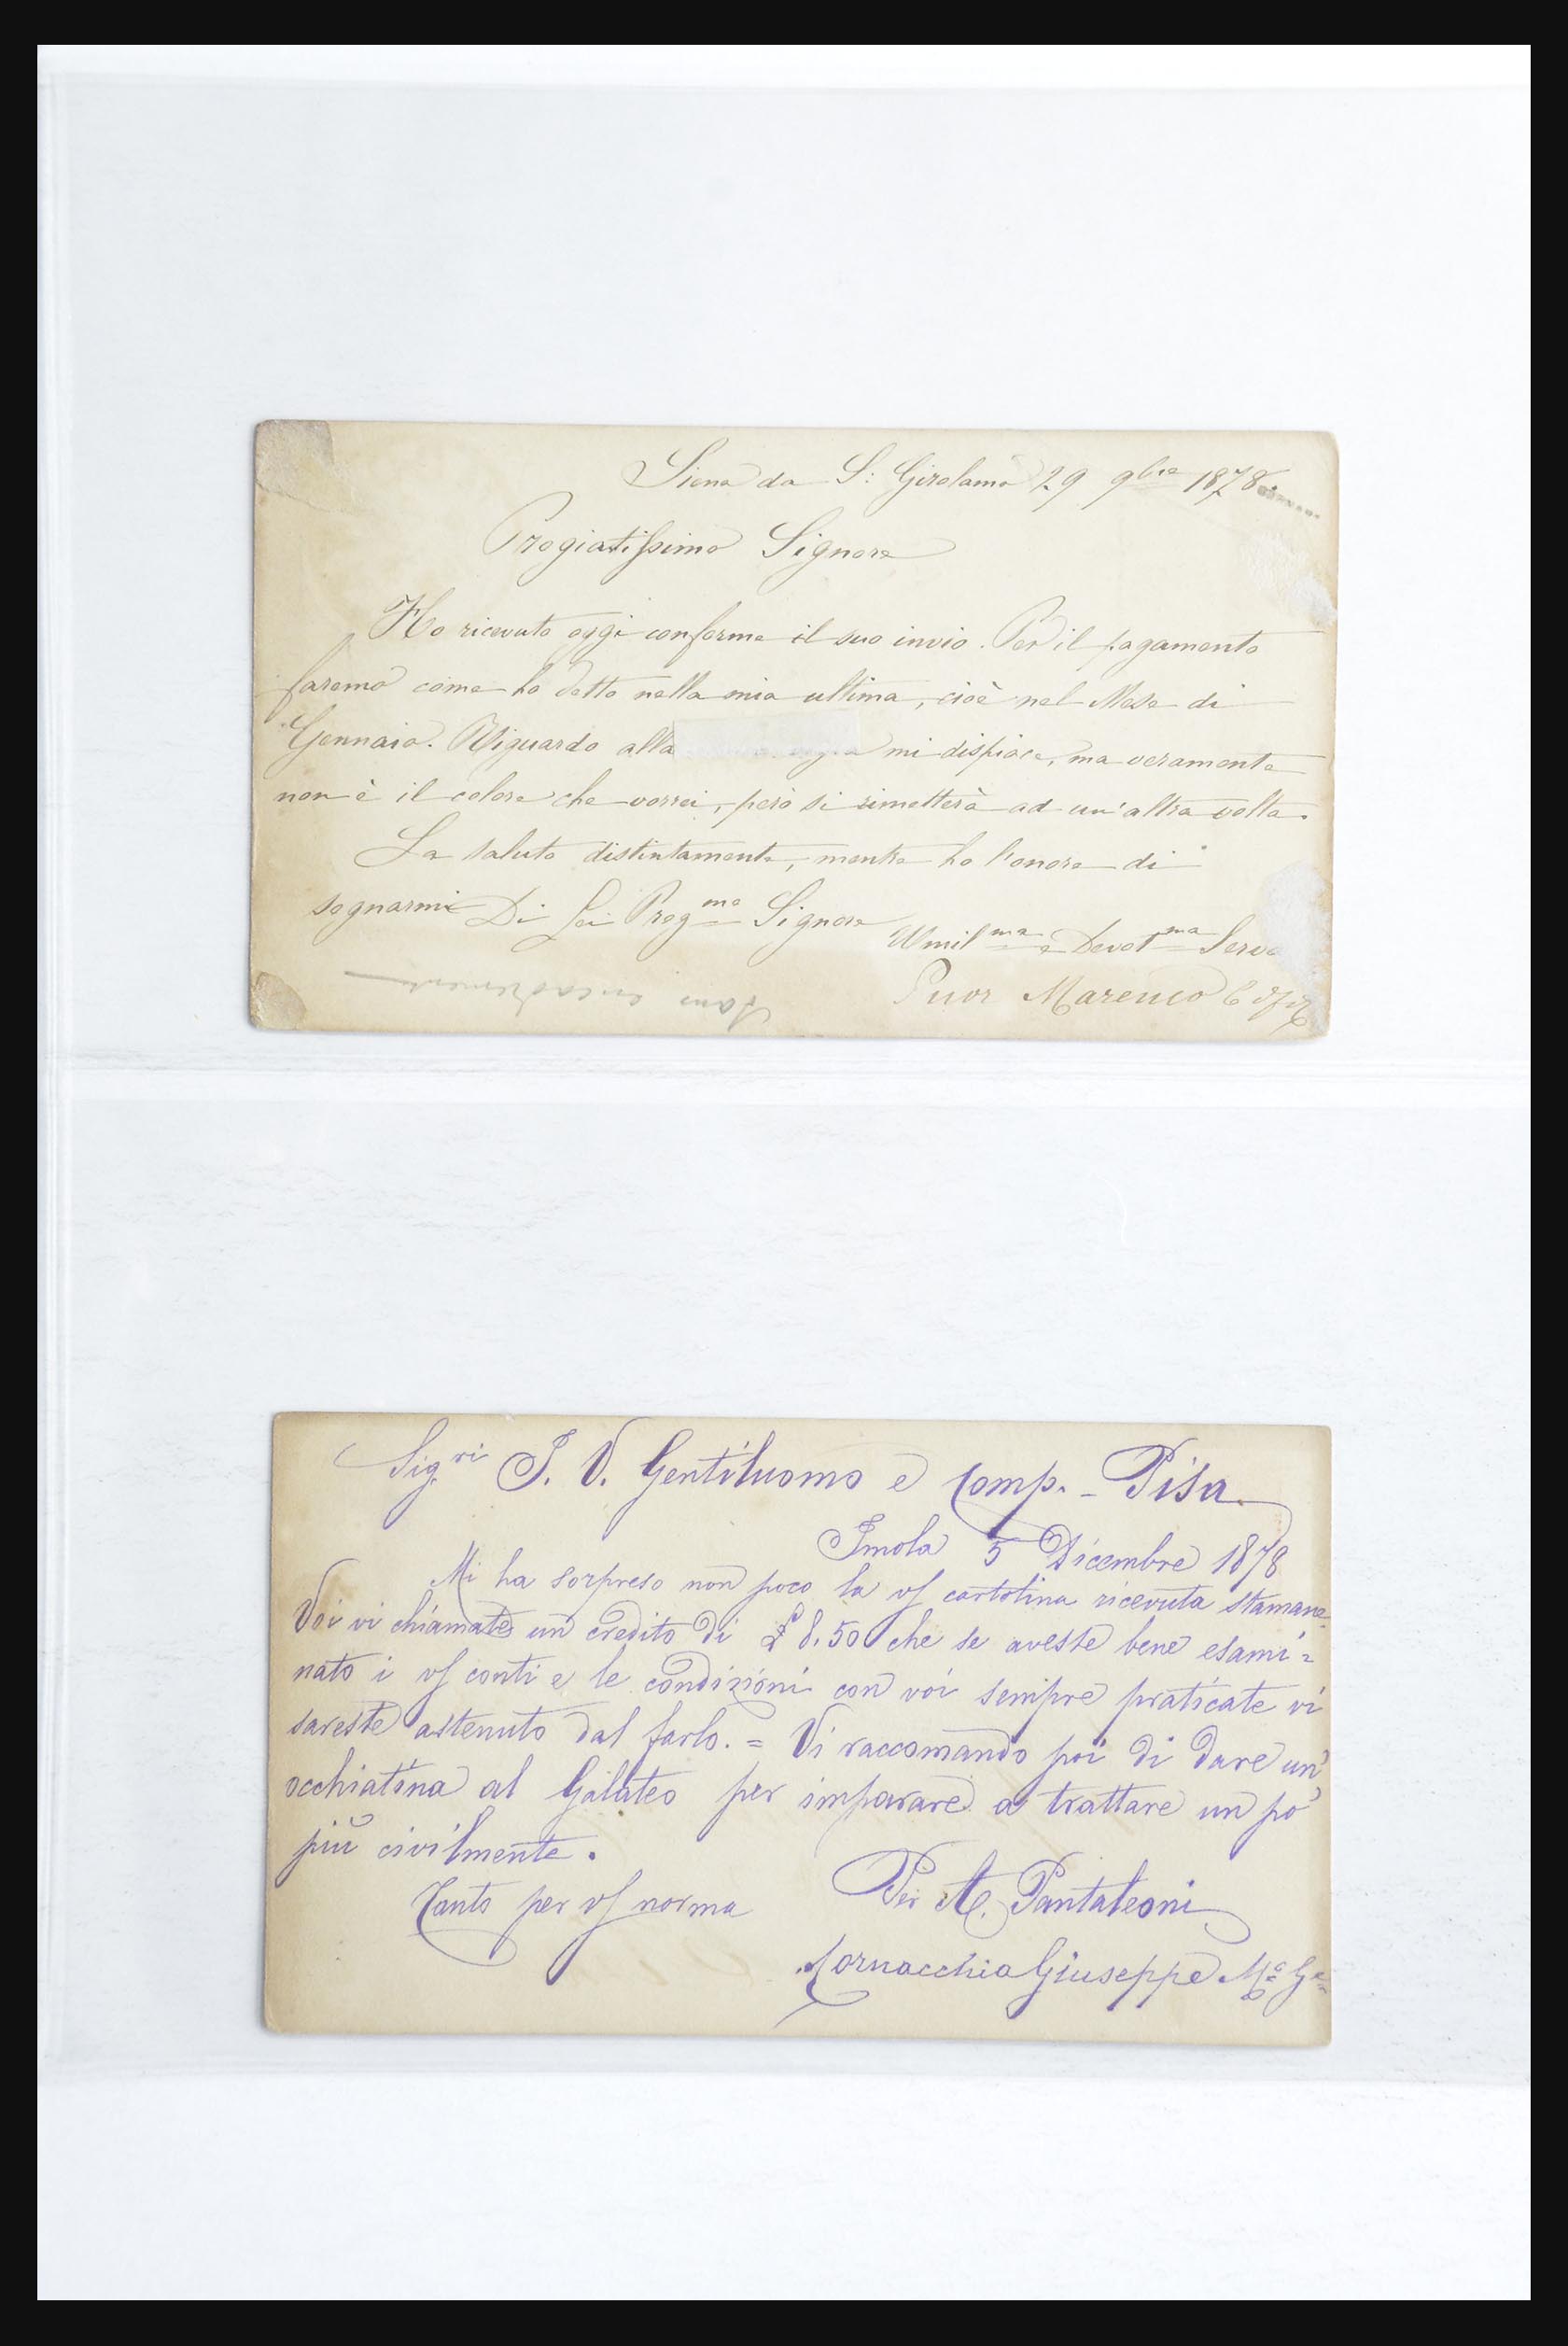 Siena da S: Girolamo 29 9bre 1878.
Pregiatissimo Signore
Ho ricevuto oggi conforme il suo invio. Per il pagamento
faremo come ho detto nella mia ultima, cioè nel Mese di
Gennaio. Riguardo alla mi dispiace, ma veramente
non è il colore che vorrei, però si rimetterà ad un'altra volta.
La saluto distintamente, mentre ho l'onore di
segnarmi Di Lei Pregmo Signore
Umilma e Devotma Serva
Suor Marenco
Sans encadrement
Sigri I. V. Gentiluomo e Comp. - Pisa
Imola 5 Dicembre 1878
Mi ha sorpreso non poco la vs cartolina ricevuta stamane
Voi vi chiamate un credito di £ 8.50 che se aveste bene esami=
nato i vs conti e le condizioni con voi sempre praticate vi
sareste astenuto dal farlo. = Vi raccomando poi di dare un'
occhiatina al Galateo per imparare a trattare un po'
più civilmente.
Tanto per vs norma
Per A. Pantaleoni
Cornacchia Giuseppe